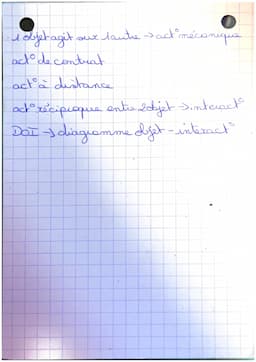 1 objet agit sur l'autre → act° mécanique
act° de contact
act° à distance
act° réciproque entre 2 objet → interact°
DOI → diagramme objet - interact°